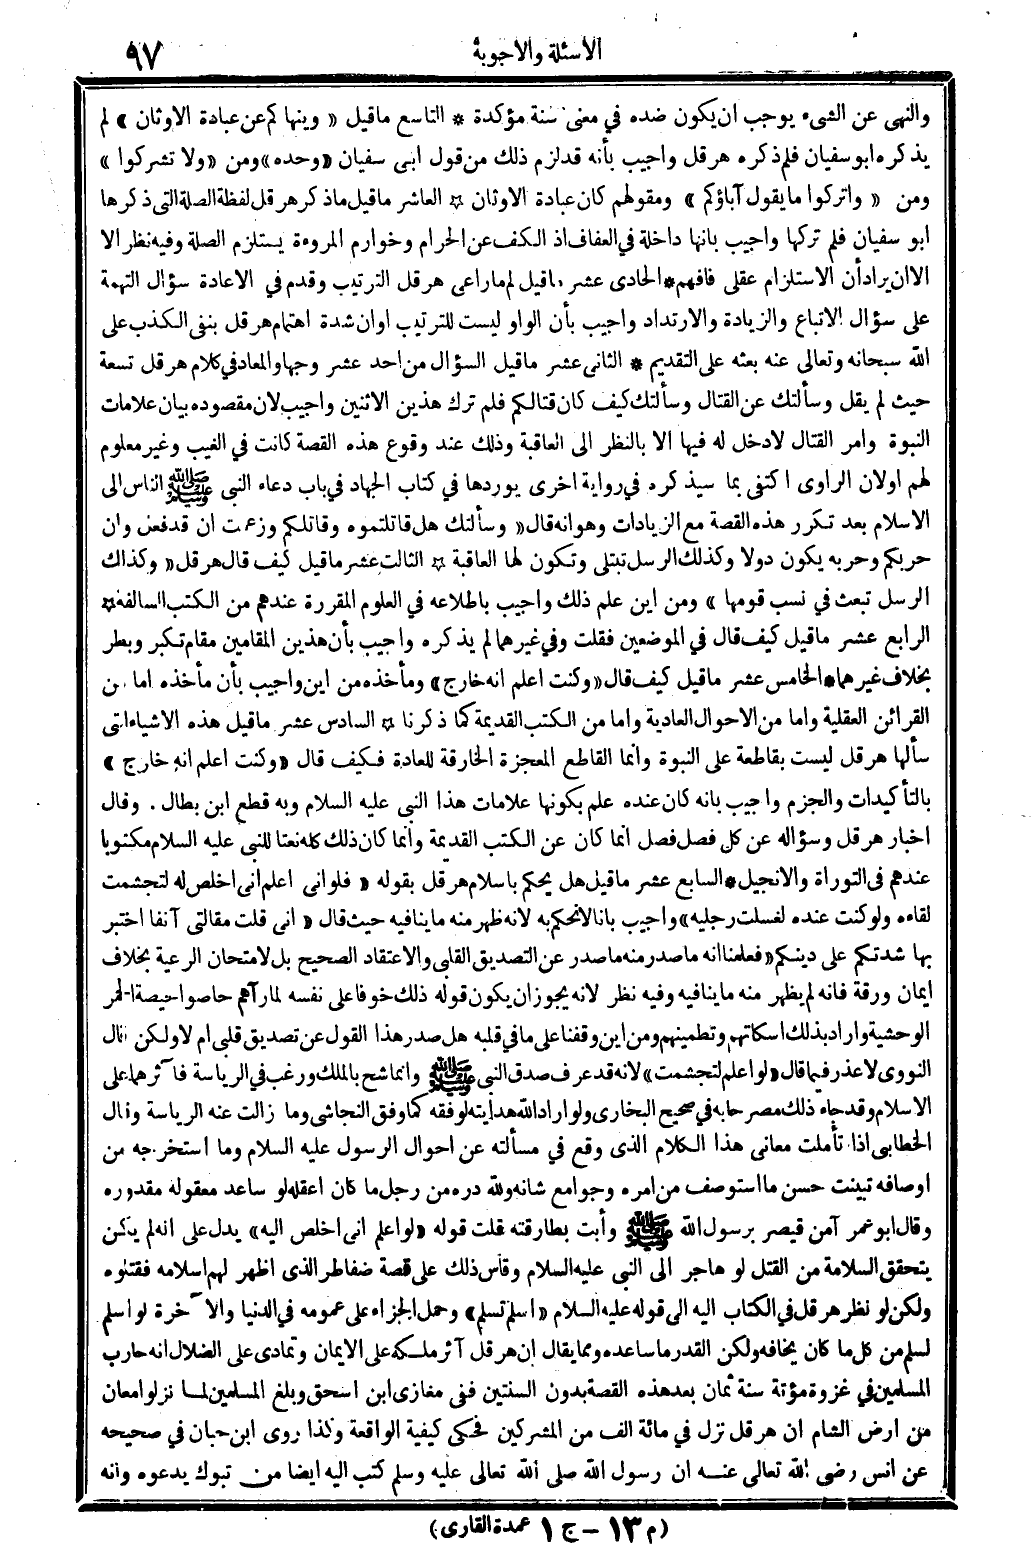 الأسئلة والاجوبة ٩٧
والنهى عن الشىء يوجب ان يكون ضده في معنى سنة مؤكدة * التاسع ماقيل « وينها كم عن عبادة الاوثان » لم
يذكره ابو سفيان فلم ذكره هرقل واجيب بأنه قد لزم ذلك من قول ابى سفيان «وحده» ومن «ولا تشركوا »
ومن « واتركوا ما يقول آباؤكم » ومقولهم كان عبادة الاوثان * العاشر ماقيل ماذكر هرقل لفظة الصلة التى ذكرها
ابو سفيان فلم تركها واجيب بانها داخلة في العفاف اذ الكف عن الحرام وخوارم المروءة يستلزم الصلة وفيه نظر الا
الا ان يراد أن الاستلزام عقلى فافهم * الحادى عشر ماقيل لم ماراعى هرقل الترتيب وقدم في الاعادة سؤال التهمة
على سؤال الاتباع والزيادة والارتداد واجيب بأن الواو ليست للترتيب اوان شدة اهتمام هرقل بنفى الكذب على
الله سبحانه وتعالى عنه بعثه على التقديم * الثانى عشر ماقيل السؤال من احد عشر وجها والمعاد في كلام هرقل تسعة
حيث لم يقل وسألتك عن القتال وسألتك كيف كان قتالكم فلم ترك هذين الاثنين واجيب لان مقصوده بيان علامات
النبوة وامر القتال لا دخل له فيها الا بالنظر الى العاقبة وذلك عند وقوع هذه القصة كانت في الغيب وغير معلوم
لهم اولان الراوى اكتفى بما سيذكره في رواية اخرى يوردها في كتاب الجهاد في باب دعاء النبى ﷺ الناس الى
الاسلام بعد تكرر هذه القصة مع الزيادات وهو انه قال « وسألتك هل قاتلتموه وقاتلكم وزعمت ان قد فعل وان
حربكم وحربه يكون دولا وكذلك الرسل تبتلى وتكون لها العاقبة * الثالث عشر ماقيل كيف قال هرقل « وكذاك
الرسل تبعث في نسب قومها » ومن اين علم ذلك واجيب باطلاعه في العلوم المقررة عندهم من الكتب السالفة *
الرابع عشر ماقيل كيف قال في الموضعين فقلت وفي غيرهما لم يذكره واجيب بأن هذين المقامين مقام تكبر وبطر
بخلاف غيرهما * الخامس عشر ماقيل كيف قال «وكنت اعلم انه خارج» ومأخذه من اين واجيب بأن مأخذه اما من
القرائن العقلية واما من الاحوال العادية واما من الكتب القديمة كما ذكرنا * السادس عشر ماقيل هذه الاشياء التى
سألها هرقل ليست بقاطعة على النبوة وانما القاطع المعجزة الخارقة للعادة فكيف قال «وكنت اعلم انه خارج »
بالتأكيدات والجزم واجيب بانه كان عنده علم بكونها علامات هذا النبى عليه السلام وبه قطع ابن بطال . وقال
اخبار هرقل وسؤاله عن كل فصل فصل انما كان عن الكتب القديمة وانما كان ذلك كله نعتا للنبى عليه السلام مكتوبا
عندهم فى التوراة والانجيل * السابع عشر ماقيل هل يحكم باسلام هرقل بقوله « فلو انى اعلم انى اخلص له لتجشمت
لقاءه ولو كنت عنده لغسلت رجليه» واجيب بانا لانحكم به لانه ظهر منه ما ينافيه حيث قال « انى قلت مقالتى آنفا اختبر
بها شدتكم على دينكم« فعلمنا انه ماصدر منه ماصدر عن التصديق القلبى والاعتقاد الصحيح بل لامتحان الرعية بخلاف
ايمان ورقة فانه لم يظهر منه ما ينافيه وفيه نظر لانه يجوز ان يكون قوله ذلك خوفا على نفسه لما رآهم حاصوا حيصة الحمر
الوحشية واراد بذلك اسكاتهم وتطمينهم ومن اين وقفنا على ما في قلبه هل صدر هذا القول عن تصديق قلبى ام لا ولكن قال
النووى لا عذر فيما قال «لو اعلم لتجشمت» لانه قد عرف صدق النبى ﷺ وانما شح بالملك ورغب في الرياسة فآثرها على
الاسلام وقد جاء ذلك مصرحا به في صحيح البخارى ولو اراد الله هدايته لوفقه كما وفق النجاشى وما زالت عنه الرياسة وقال
الخطابى اذا تأملت معانى هذا الكلام الذى وقع في مسألته عن احوال الرسول عليه السلام وما استخرجه من
اوصافه تبينت حسن ما استوصف من امره وجوامع شانه ولله دره من رجل ما كان اعقله لو ساعد معقوله مقدوره
وقال ابو عمر آمن قيصر برسول الله ﷺ وأبت بطارقته قلت قوله «لو اعلم انى اخلص اليه» يدل على انه لم يكن
يتحقق السلامة من القتل لو هاجر الى النبى عليه السلام وقاس ذلك على قصة ضفاطر الذى اظهر لهم اسلامه فقتلوه
ولكن لو نظر هرقل في الكتاب اليه الى قوله عليه السلام «اسلم تسلم» وحمل الجزاء على عمومه في الدنيا والآخرة لو اسلم
لسلم من كل ما كان يخافه ولكن القدر ماساعده ومما يقال ان هرقل آثر ملكه على الايمان وتمادى على الضلال انه حارب
المسلمين في غزوة مؤتة سنة ثمان بعد هذه القصة بدون السنتين ففى مغازى ابن اسحق وبلغ المسلمين لما نزلوا معان
من ارض الشام ان هرقل نزل في مائة الف من المشركين فحكى كيفية الواقعة وكذا روى ابن حبان في صحيحه
عن انس رضى الله تعالى عنه ان رسول الله صلى الله تعالى عليه وسلم كتب اليه ايضا من تبوك يدعوه وانه
(م ١٣ – ج ١ عمدة القارى)